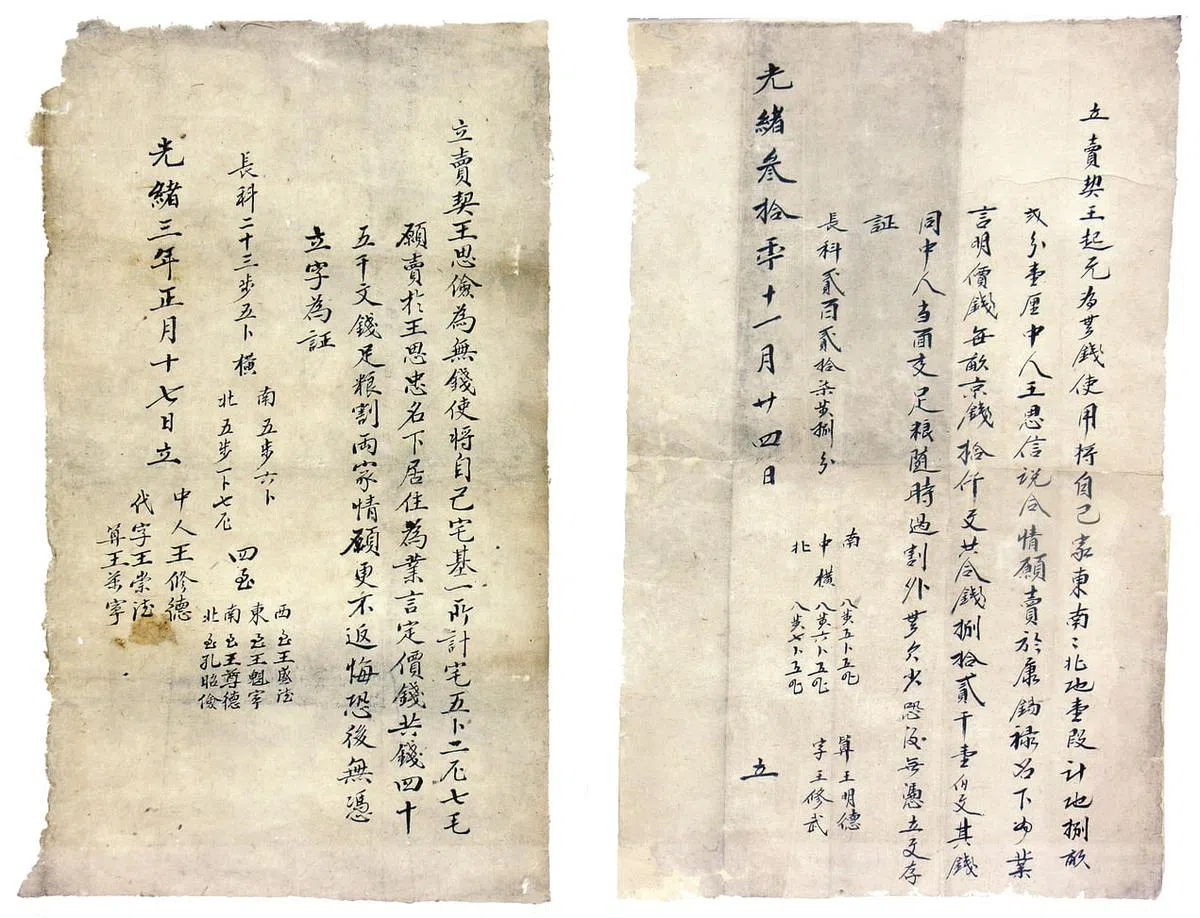 立賣契王思儉為無錢使將自己宅基一所計宅五卜二尺七毛
願賣於王思忠名下居住為業言定價錢共錢四十
五千文錢足粮割兩家情願更不返悔恐後無憑
立字為証
長科二十三步五卜 橫
南五步六卜
北五步一卜七尺
四至
西至王盛法
東至王魁宇
南至王尊德
北至孔昭俊
光緒三年正月十七日立
中人王修德
代字王崇法
算王萬宇
立賣契王起元為無錢使用将自己家東南南北地壹段計地捌畝
弍分壹厘中人王思信説合情願賣於康錫禄名下為業
言明價錢每畝京錢拾仟文共合錢捌拾貳千壹佰文其錢
同中人当面支足粮隨時過割外無欠少恐後無憑立文存
証
長科貳百貳拾柒步捌分
南 八步五卜五尺
中橫 八步六卜五尺
北 八步七卜五尺
算王明德
字王修武
光緒叁拾年十一月廿四日 立